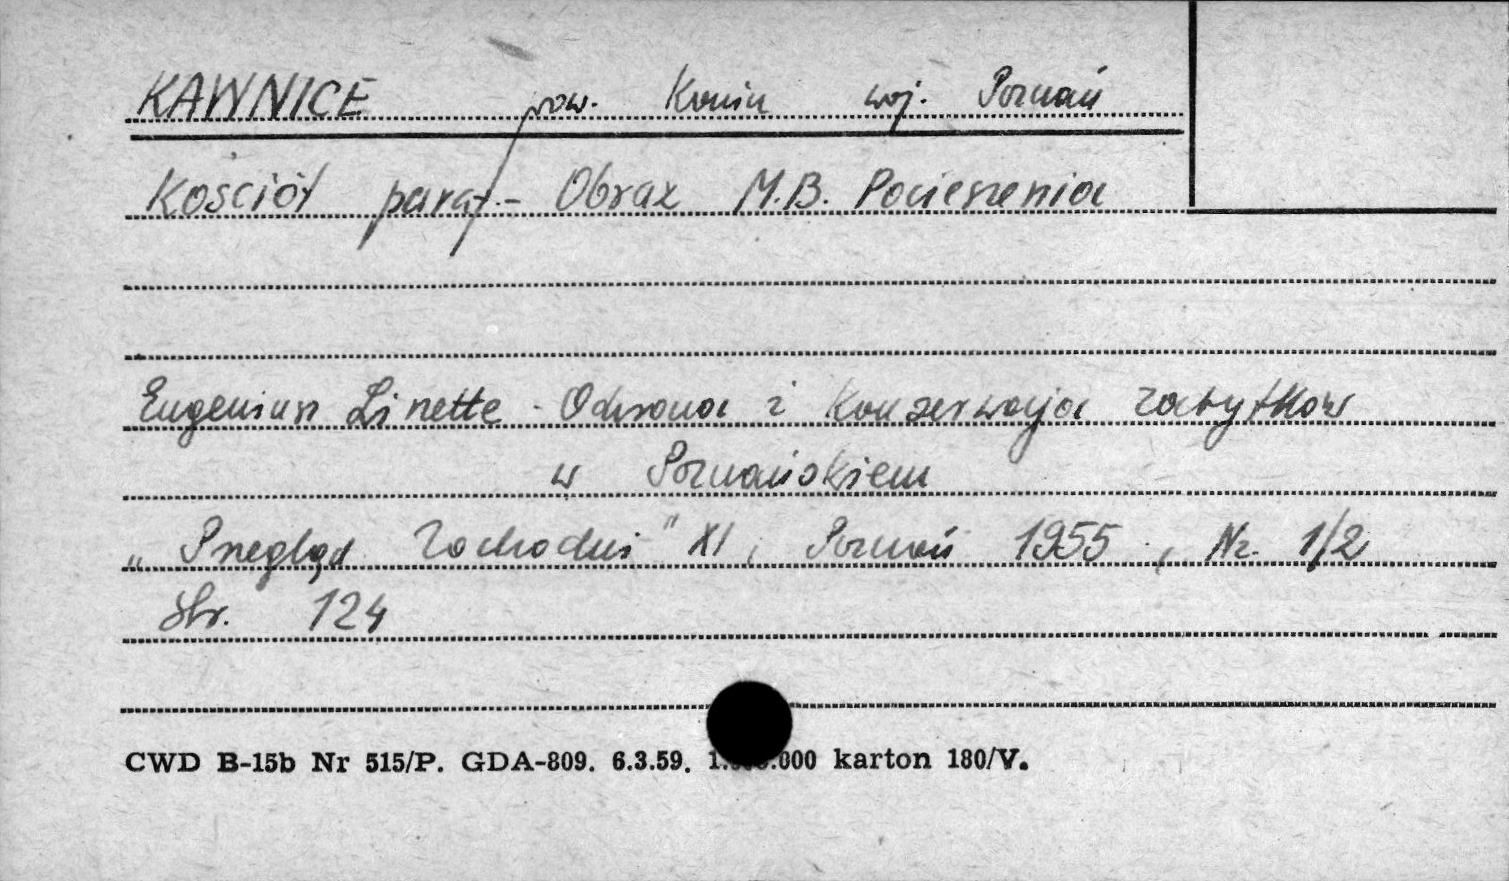 KAWNICE pow. Konin woj. Poznań
Kościół paraf. - Obraz M.B. Pocieszenia
Eugeniusz Linette - Ochrona i konserwacja zabytków
w Poznańskiem
„Przegląd Zachodni" XI, Poznań 1955, Nr. 1/2
Str. 124
CWD B-15b Nr 515/P. GDA-809. 6.3.59. karton 180/V.